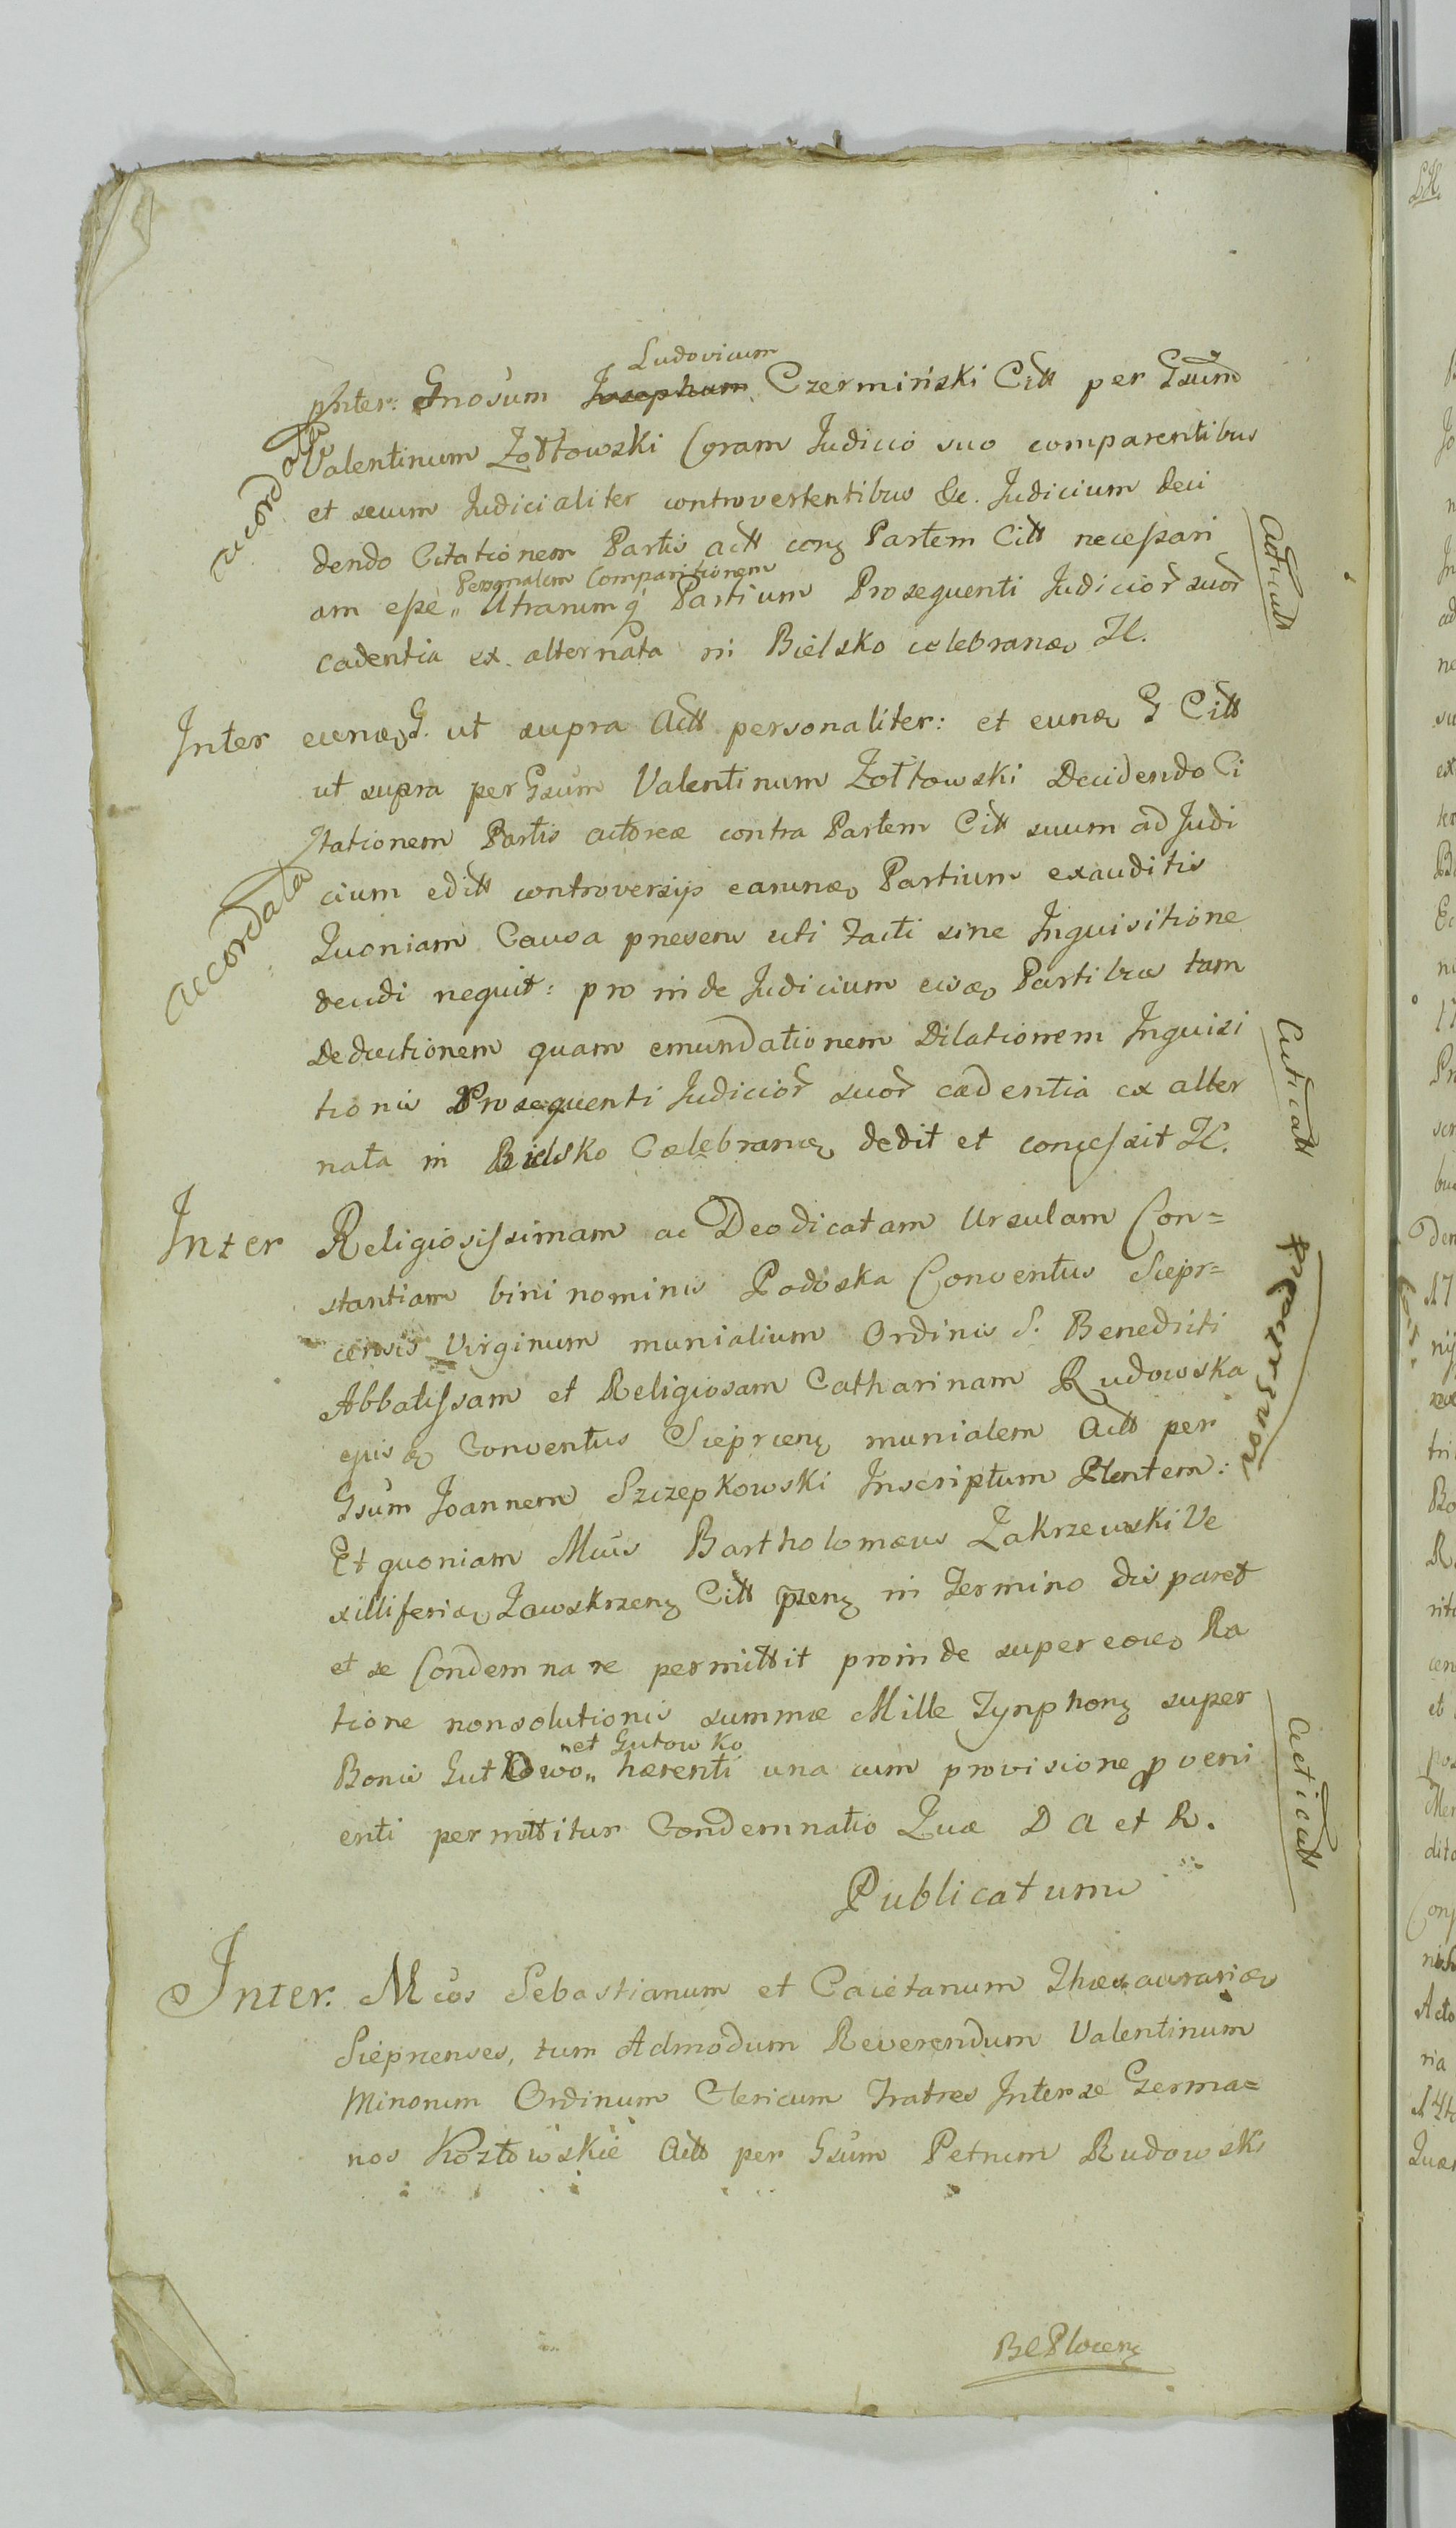 Ludovicum
Inter: Gnosum Josephum Czerminski Citt per Gsum
accordata
Valentinum Zołtowski Coram Judicio suo comparentibus
et secum Judicialiter controvertentibus &c. Judicium Deci
dendo Citationem Partis actt conz Partem Citt necessari
Personalem Comparitionem
am esse „ Utrarumq Partium Prosequenti Judicior suor
cadentia ex alternata in Bielsko celebranda H.
acticatt
Inter eund G. ut supra Actt personaliter: et eund G Citt
ut supra per Gsum Valentinum Zołtowski Decidendo Ci
tationem Partis actoreæ contra Partem Citt suum ad Judi
cium editt controversijs earund Partium exauditis
accordata
Quoniam Causa præsens uti facti sine Inquisitione
decidi nequit: proinde Judicium eisd Partibus tam
Deductionem quam emundationem Dilationem Inquisi
tionis Prosequenti Judicior suor cadentia ex alter
nata in Bielsko Celebrand dedit et concessit H.
acticatt
Inter Religiosissimam ac Deodicatam Ursulam Con=
stantiam bini nominis Podoska Conventus Siepr=
censis Virginum monialium Ordinis S. Benedicti
Abbatissam et Religiosam Catharinam Rudowska
ejusd Conventus Sieprcenz monialem Actt per
Gsum Joannem Szczepkowski Inscriptum Plentem:
Et quoniam Mcus Bartholomæus Zakrzewski Ve
xilliferid Zawskrzenz Citt pzenz in Termino dis paret
et se Condemnare permittit proinde super eod Ra
tione nonsolutionis summæ Mille Tynphonz super
„et Gutowko
Bonis Gutkowo „ hærenti una cum provisione proveni
enti permittitur Condemnatio Quæ D A et R.
acticatt
Publicatum
Inter. Mcos Sebastianum et Caietanum Thesaurarid
Sieprcenses, tum Admodum Reverendum Valentinum
Minorum Ordinum Clericum Fratres Inter se Germa=
nos Kozłowskie Actt per Gsum Petrum Rudowski
BCPlocenz